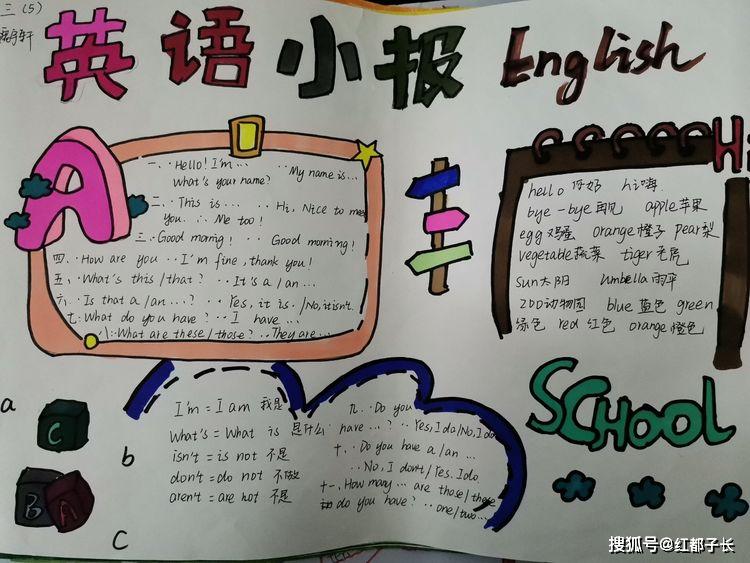 三(5)
英语小报 English
A
一、·Hello! I'm... ··My name is...
What's your name?
二、·This is... ··Hi, Nice to meet
you. ·Me too!
三、·Good morning! ··Good morning!
四、·How are you ··I'm fine, thank you!
五、·What's this/that? ··It's a/an...
六、·Is that a/an...? ··Yes, it is./No, it isn't.
七:·What do you have? ··I have...
八:·What are these/those? ··They are...
H
hello 你好 hi嗨
bye-bye再见 apple苹果
egg鸡蛋 orange橙子 pear梨
vegetable蔬菜 tiger老虎
sun太阳 umbella雨伞
zoo动物园 blue蓝色 green
绿色 red红色 orange橙色
I'm = I am 我是
What's = What is 是什么
isn't = is not 不是
don't = do not 不做
aren't = are not 不是
九、·Do you
have...? ··Yes, I do/No, I do
十、·Do you have a/an...
··No, I don't/Yes. I do.
十一、·How many... are those/these
do you have? ··one/two...
SCHOOL
a
b
c
C
B
A
搜狐号@红都子长